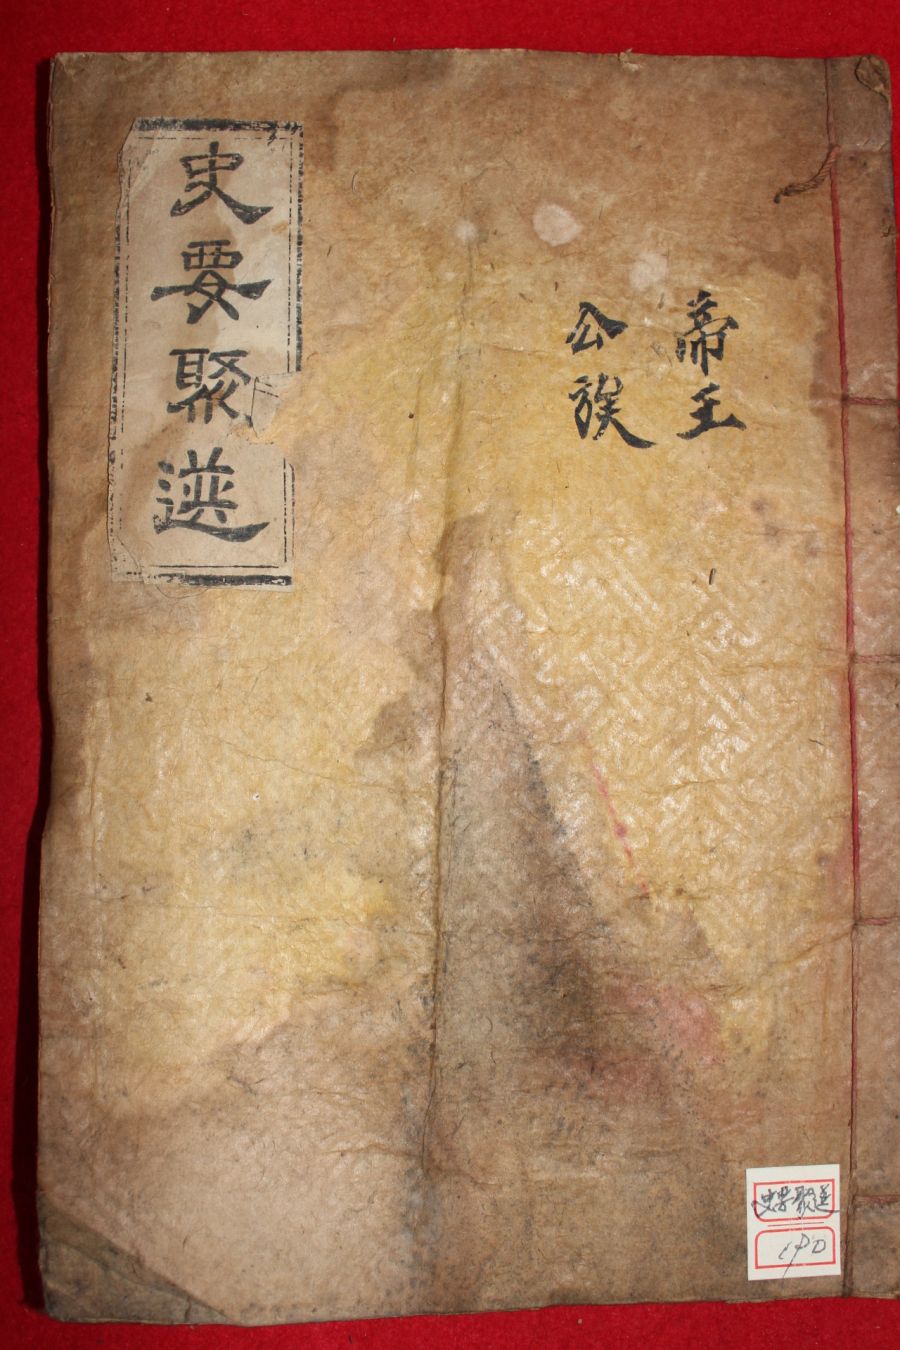 史要聚選
帝王
公族
史要聚選
190